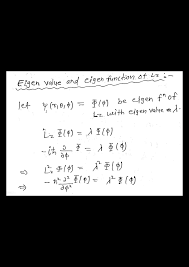 Eigen value and eigen function of Lz :-
let ψ(r,θ,φ) = Φ(φ) be eigen fⁿ of
Lz with eigen value λ.
L̂z Φ(φ) = λ Φ(φ)
-iħ ∂/∂φ Φ = λ Φ(φ)
⇒ L̂z² Φ(φ) = λ² Φ(φ)
⇒ -ħ² ∂²/∂φ² Φ(φ) = λ² Φ(φ)